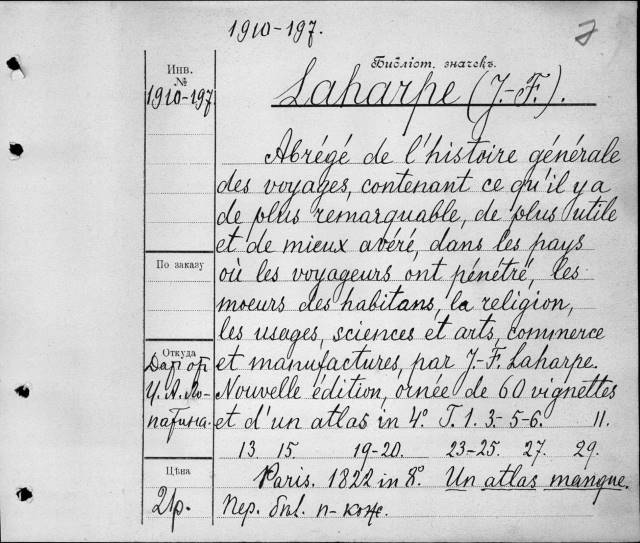 1910-197.
Библіот. значекъ.
Инв.
№
1910-197
Laharpe (J.-F.).
Abrégé de l'histoire générale
des voyages, contenant ce qu'il y a
de plus remarquable, de plus utile
et de mieux avéré, dans les pays
où les voyageurs ont pénétré, les
moeurs des habitans, la religion,
les usages, sciences et arts, commerce
et manufactures, par J.-F. Laharpe.
Nouvelle édition, ornée de 60 vignettes
et d'un atlas in 4º. T. 1. 3-5-6. 11.
13 15. 19-20. 23-25. 27. 29.
Paris. 1822 in 8º. Un atlas manque.
Пер. п-кож.
По заказу
Откуда
Дар от
И. А. Ло-
патина.
Цѣна
21р.